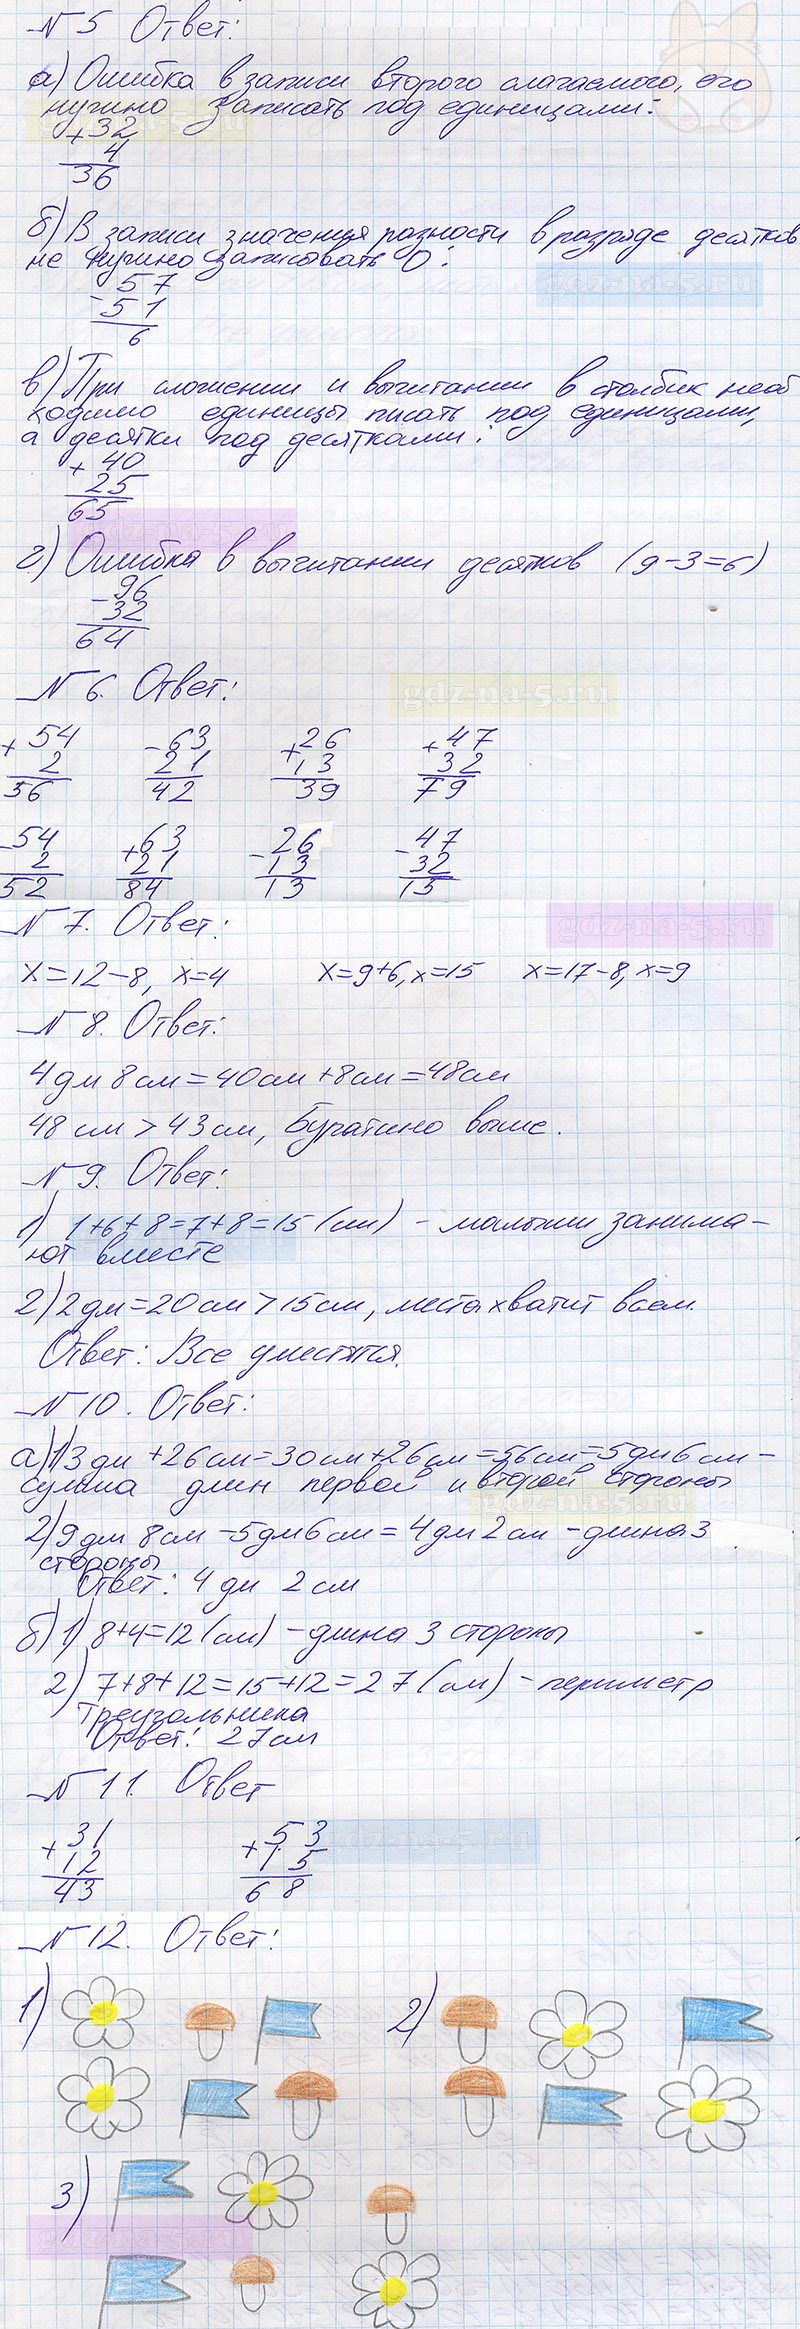 №5 Ответ:
а) Ошибка в записи второго слагаемого, его
нужно записать под единицами:
gdz-na-5.ru
+32
4
36
б) В записи значения разности в разряде десятков
не нужно записывать 0:
gdz-na-5.ru
-57
51
6
в) При сложении и вычитании в столбик необ
ходимо единицы писать под единицами,
а десятки под десятками:
+40
25
65
gdz-na-5.ru
г) Ошибка в вычитании десятков (9-3=6)
-96
32
64
№6. Ответ:
gdz-na-5.ru
+54 -63 +26 +47
2 21 13 32
56 42 39 79
-54 +63 -26 -47
2 21 13 32
52 84 13 15
№7. Ответ:
gdz-na-5.ru
х=12-8, х=4 х=9+6, х=15 х=17-8, х=9
№8. Ответ:
4дм 8см=40см+8см=48см
48см>43см, Буратино выше.
№9. Ответ:
1) 1+6+8=7+8=15(см) - малыши занима-
ют вместе
2) 2дм=20см>15см, места хватит всем
Ответ: Все уместятся.
№10. Ответ:
а) 1) 3дм+26см=30см+26см=56см=5дм6см-
сумма длин первой и второй стороны
gdz-na-5.ru
2) 9дм 8см-5дм6см=4дм2см - длина 3
стороны
Ответ: 4дм 2см
б) 1) 8+4=12(см) - длина 3 стороны
2) 7+8+12=15+12=27(см) - периметр
треугольника
Ответ: 27см
№11. Ответ
+31 +53
12 15
43 68
gdz-na-5.ru
№12. Ответ:
1) 2)
3)
gdz-na-5.ru